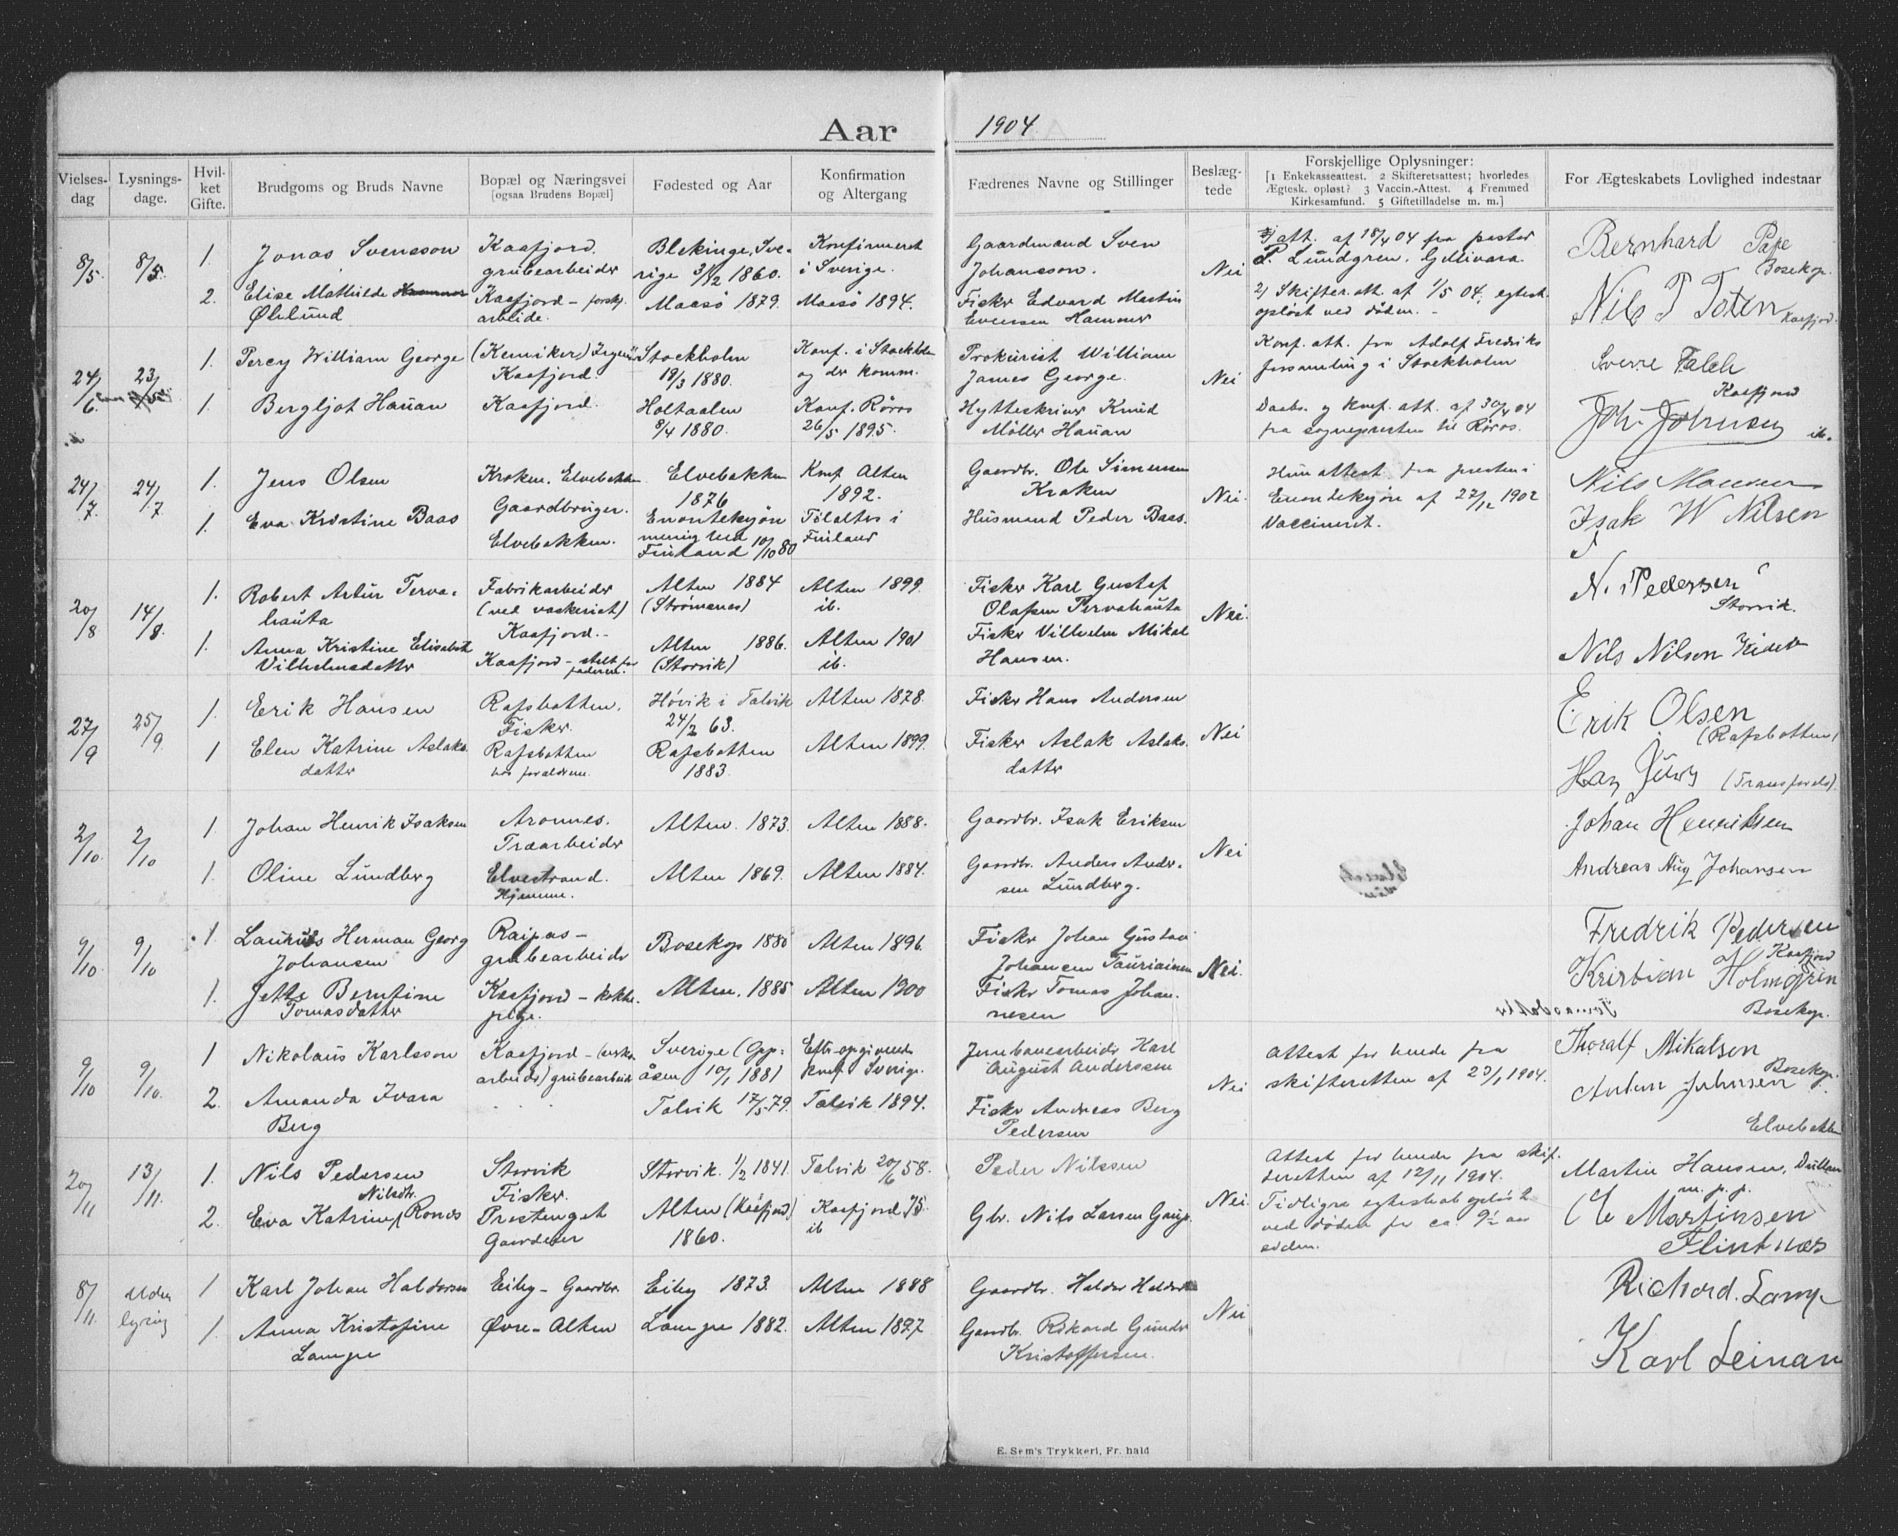 Aar 1904.
Vielses-dag
Lysnings-dage.
Hvilket Gifte.
Brudgoms og Bruds Navne
Bopæl og Næringsvei
[ogsaa Brudens Bopæl]
Fødested og Aar
Konfirmation og Altergang
Fædrenes Navne og Stillinger
Beslæg-tede
Forskjellige Oplysninger:
[1 Enkekasseattest. 2 Skifteretsattest; hvorledes
Ægtesk. opløst? 3 Vaccin.-Attest. 4 Fremmed
Kirkesamfund. 5 Giftetilladelse m. m.]
For Ægteskabets Lovlighed indestaar
8/5. 8/5.
1. Jonas Svensson
Kaafjord.
grubearbeider
Blekinge, Sve-
rige 3/12 1860.
Konfirmeret
i Sverige.
Gaardmand Sven
Johansson.
Nei
att. af 18/4 04 fra pastor
P. Lundgren, Gellivara.
Bernhard Pape
Bosekop.
2. Elise Mathilde
Øhlund
Kaafjord - forskj.
arbeide.
Maasø 1879.
Maasø 1894.
Fisker Edvard Martin
Evensen Hammer
2) Skifter. att. af 1/5 04, egtesk.
opløst ved døden. -
Nils P Toten
Kaafjord.
24/6 23/5
1. Percy William George
(Kemiker) Ingeniør
Kaafjord.
Stockholm
19/3 1880.
Konf. i Stockholm
og der komm.
Prokurist William
James George.
Nei
Konf. att. fra Adolf Fredriks
forsamling i Stockholm
Sverre Falch
Kaafjord
1. Bergljot Hauan
Kaafjord.
Holtaalen
8/4 1880.
Konf. Røros
26/5 1895.
Hytteskriver Knud
Møller Hauan
Daabs. og konf. att. af 30/4 04
fra sognepresten til Røros.
Joh. Johnsen
ib.
24/7. 24/7.
1. Jens Olsen
Kroken, Elvebakken
Gaardbruger.
Elvebakken
1876
Konf. Alten
1892.
Gaardbr. Ole Simensen
Kroken
Nei.
Hun attest fra presten i
Enontekjøn af 27/12 1902
Vaccineret.
Nils Monsen
1. Eva Kristine Baas
Elvebakken.
Enontekjøn
menighed
Finland 10/10 80
Tilalters i
Finland
Husmand Peder Baas.
Isak W Nilsen
20/8 14/8.
1. Robert Artur Terva-
hauta
Fabrikarbeider
(ved vaskeriet)
Kaafjord.-
Alten 1884
(Strømsnes)
Alten 1899.
ib.
Fisker Karl Gustaf
Olafsen Tervahauta
Nei.
N. Pedersen
Storvik.
1. Anna Kristine Elisabeth
Vilhelmsdatter
Kaafjord - stelt for
faderen.
Alten 1886.
(Storvik)
Alten 1901
ib.
Fisker Vilhelm Mikal
Hansen.
Nils Nilsen
27/9 25/9.
1. Erik Hansen
Rafsbotten.
Fisker.
Høvik i Talvik
24/2 63.
Alten 1878.
Fisker Hans Andersen
Nei
Erik Olsen
(Rafsbotten)
1 Elen Katrine Aslaks-
datter
Rafsbotten
hos forældrene.
Rafsbotten
1883.
Alten 1899.
Fisker Aslak Aslaks-
datter
2/10. 2/10
1 Johan Henrik Isaksen
Aronnes.
Træarbeider
Alten. 1873.
Alten 1888.
Gaardbr. Isak Eriksen
Nei
Johan Henriksen
1. Oline Lundberg
Elvestrand.
Hjemme.
Alten 1869.
Alten 1884.
Gaardbr. Anders Ander-
sen Lundberg.
Andreas Aug Johansen
9/10 9/10
1. Laurits Herman Georg
Johansen
Raipas -
grubearbeider
Bosekop 1880
Alten 1896.
Fisker Johan Gustav
Johansen Tauriainen
Nei.
Fredrik Pedersen
Kaafjord
1. Jette Berntine
Tomasdatter
Kaafjord - kokke-
pige.
Alten. 1885
Alten 1900
Fisker Tomas Johan-
nesen
Kristian Holmgren
Bosekop.
9/10 9/10.
1 Nikolaus Karlsson
Kaafjord - (
arbeider) grubearbeider
Sverige (Opp-
åsen 10/1 1881
Efter opgivende
konf Sverige.
Jernbanearbeider Karl
August Anderssen
Nei
Attest for hende fra
skifteretten af 23/1 1904.
Thoralf Mikalsen
Bosekop.
2. Amanda Ivara
Berg
Talvik 17/5 79.
Talvik 1894.
Fisker Andreas Berg
Pedersen
Anton Johnsen
Elvebakken
20/11 13/11.
1. Nils Pedersen
Storvik
Fisker.
Storvik. 1/2 1841.
Talvik 20/6 58.
Peder Nilssen
Nei.
Attest for hende fra skif-
teretten af 12/11 1904.
Tidligre egteskab opløst
ved døden for ca. 9½ aar
siden.
Martin Hansen,
m. p. p.
2. Eva Katrine Nilsdtr. Ronæs
Prestenget
Gaardeier
Alten (Kåfjord)
1860.
Kaafjord 75.
ib
Gbr. Nils Larsen Gaup.
Martinsen
Flintnæs
8/11. Uden lysning
1 Karl Johan Haldorsen
Eiby - Gaardbr.
Eiby 1873.
Alten 1888
Gaardbr. Haldor Haldorsen
Nei
Richard. Lampe
1. Anna Kristofine
Lampe
Øvre - Alten
Lampe 1882.
Alten 1897
Gaardbr. Rikard Gunder
Kristoffersen.
Karl Leinan
E. Sem's Trykkeri, Fr. hald